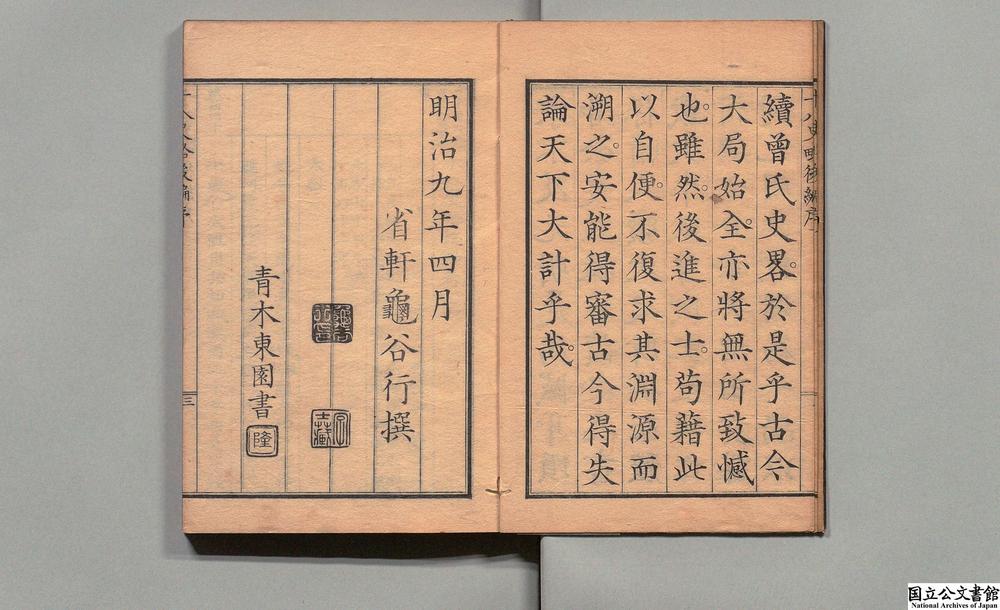 續曾氏史畧。於是乎古今
大局始全。亦將無所致憾
也。雖然。後進之士。苟藉此
以自便。不復求其淵源而
溯之。安能得審古今得失
論天下大計乎哉。
明治九年四月
省軒龜谷行撰
青木東園書
隆
十八史畧後編序
三
国立公文書館
National Archives of Japan